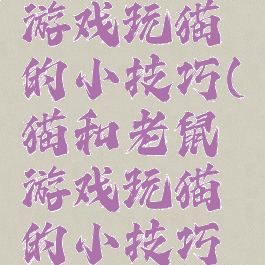 游戏玩猫
的小技巧(
猫和老鼠
游戏玩猫
的小技巧